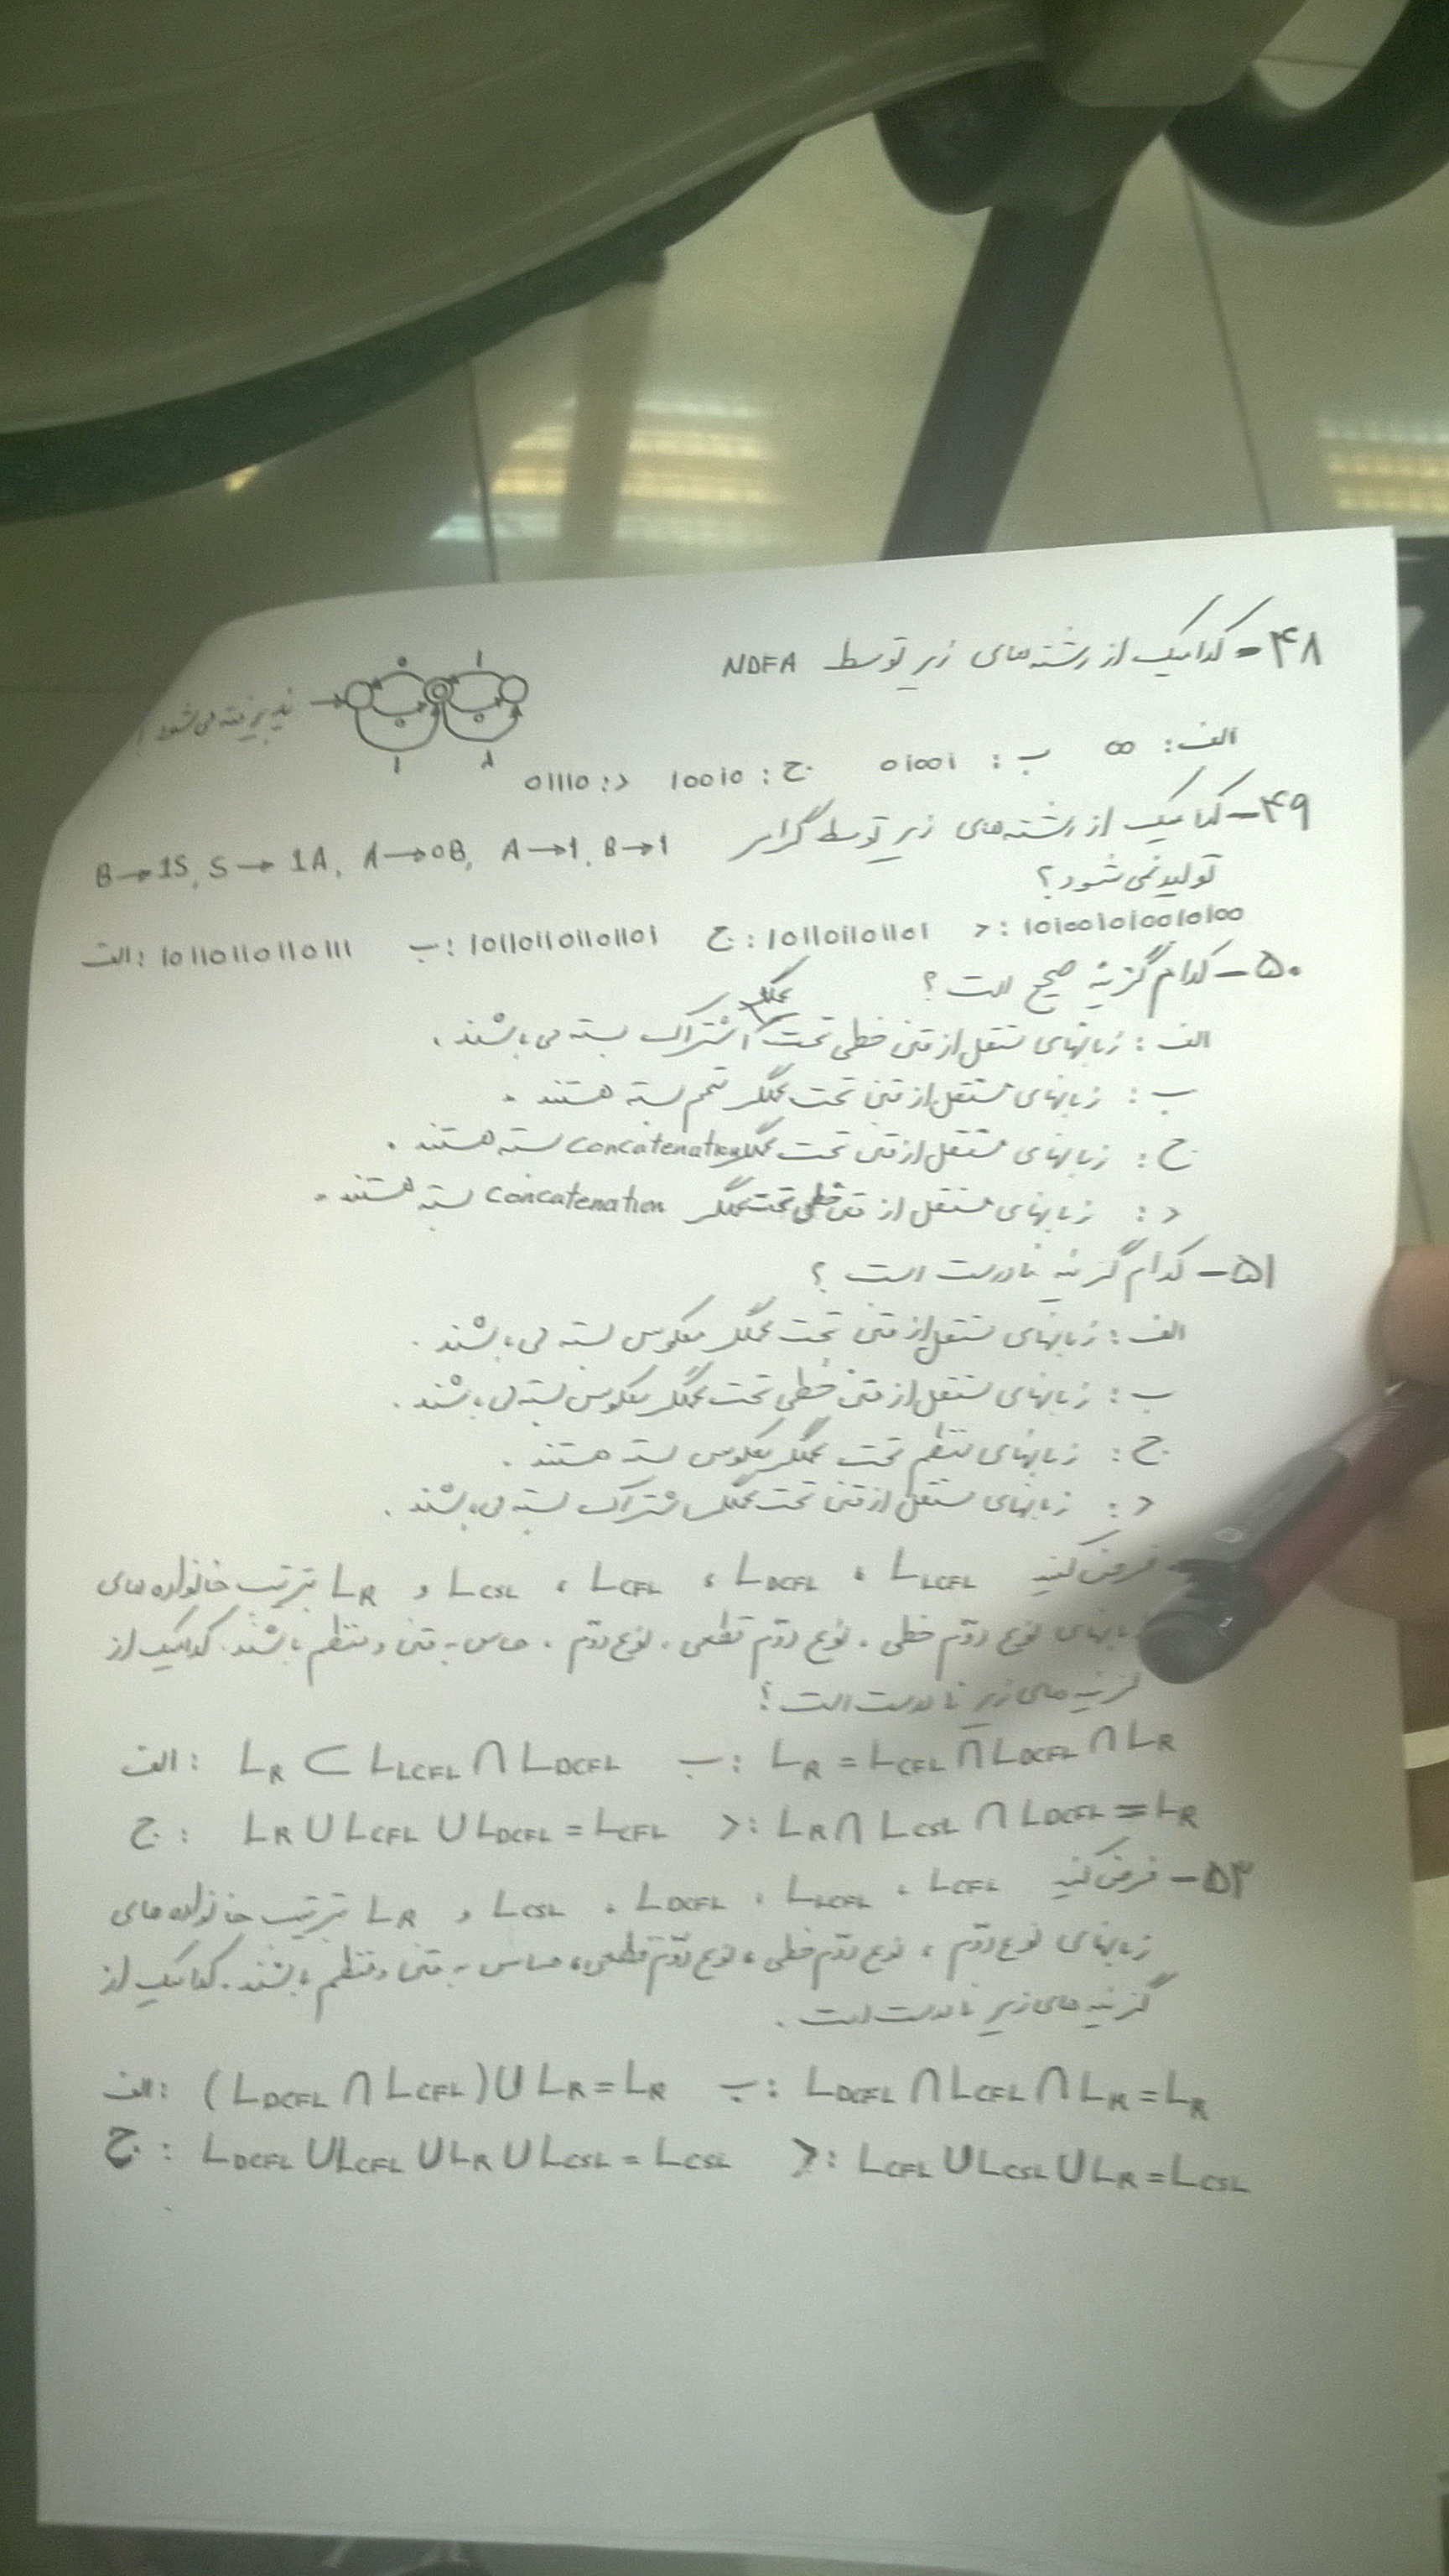 ۴۸- کدامیک از رشته‌های زیر توسط NDFA
0 1
0 0
1 λ
پذیرفته می‌شود؟
الف: 00 ب: 01001 ج: 10010 د: 01110
۴۹- کدامیک از رشته‌های زیر توسط گرامر B→1S, S→1A, A→0B, A→1, B→1
تولید نمی‌شود؟
الف: 10110110110111 ب: 101101101101101 ج: 101101101101 د: 10100101001010100
۵۰- کدام گزینه صحیح است؟
عملگر
الف: زبانهای مستقل از متن خطی تحت اشتراک بسته می‌باشند.
ب: زبانهای مستقل از متن تحت عملگر متمم بسته هستند.
ج: زبانهای مستقل از متن تحت عملگر concatenation بسته هستند.
د: زبانهای مستقل از متن خطی تحت عملگر concatenation بسته هستند.
۵۱- کدام گزینه نادرست است؟
الف: زبانهای مستقل از متن تحت عملگر معکوس بسته می‌باشند.
ب: زبانهای مستقل از متن خطی تحت عملگر معکوس بسته می‌باشند.
ج: زبانهای منظم تحت عملگر معکوس بسته هستند.
د: زبانهای مستقل از متن تحت عملگر اشتراک بسته می‌باشند.
فرض کنید L_LCFL ، L_DCFL ، L_CFL ، L_CSL و L_R بترتیب خانواده‌های
زبانهای نوع دوّم خطی ، نوع دوّم قطعی ، نوع دوّم ، حساس به متن و منظم باشند. کدامیک از
گزینه‌های زیر نادرست است؟
الف: L_R ⊂ L_LCFL ∩ L_DCFL ب: L_R = L_CFL ∩ L_DCFL ∩ L_R
ج: L_R ∪ L_CFL ∪ L_DCFL = L_CFL د: L_R ∩ L_CSL ∩ L_DCFL = L_R
۵۳- فرض کنید L_CFL ، L_LCFL ، L_DCFL ، L_CSL و L_R بترتیب خانواده‌های
زبانهای نوع دوّم ، نوع دوّم خطی ، نوع دوّم قطعی، حساس به متن و منظم باشند. کدامیک از
گزینه‌های زیر نادرست است.
الف: (L_DCFL ∩ L_CFL) ∪ L_R = L_R ب: L_DCFL ∩ L_CFL ∩ L_R = L_R
ج: L_DCFL ∪ L_CFL ∪ L_R ∪ L_CSL = L_CSL د: L_CFL ∪ L_CSL ∪ L_R = L_CSL